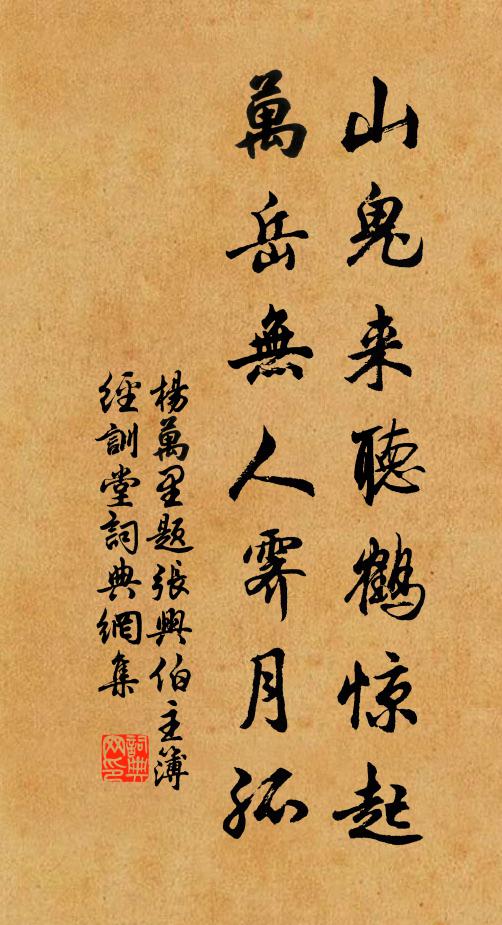 山鬼来聽鶴惊起
萬岳無人霁月孤
楊萬里題張興伯主簿
經訓堂詞典網集
詞典
网印